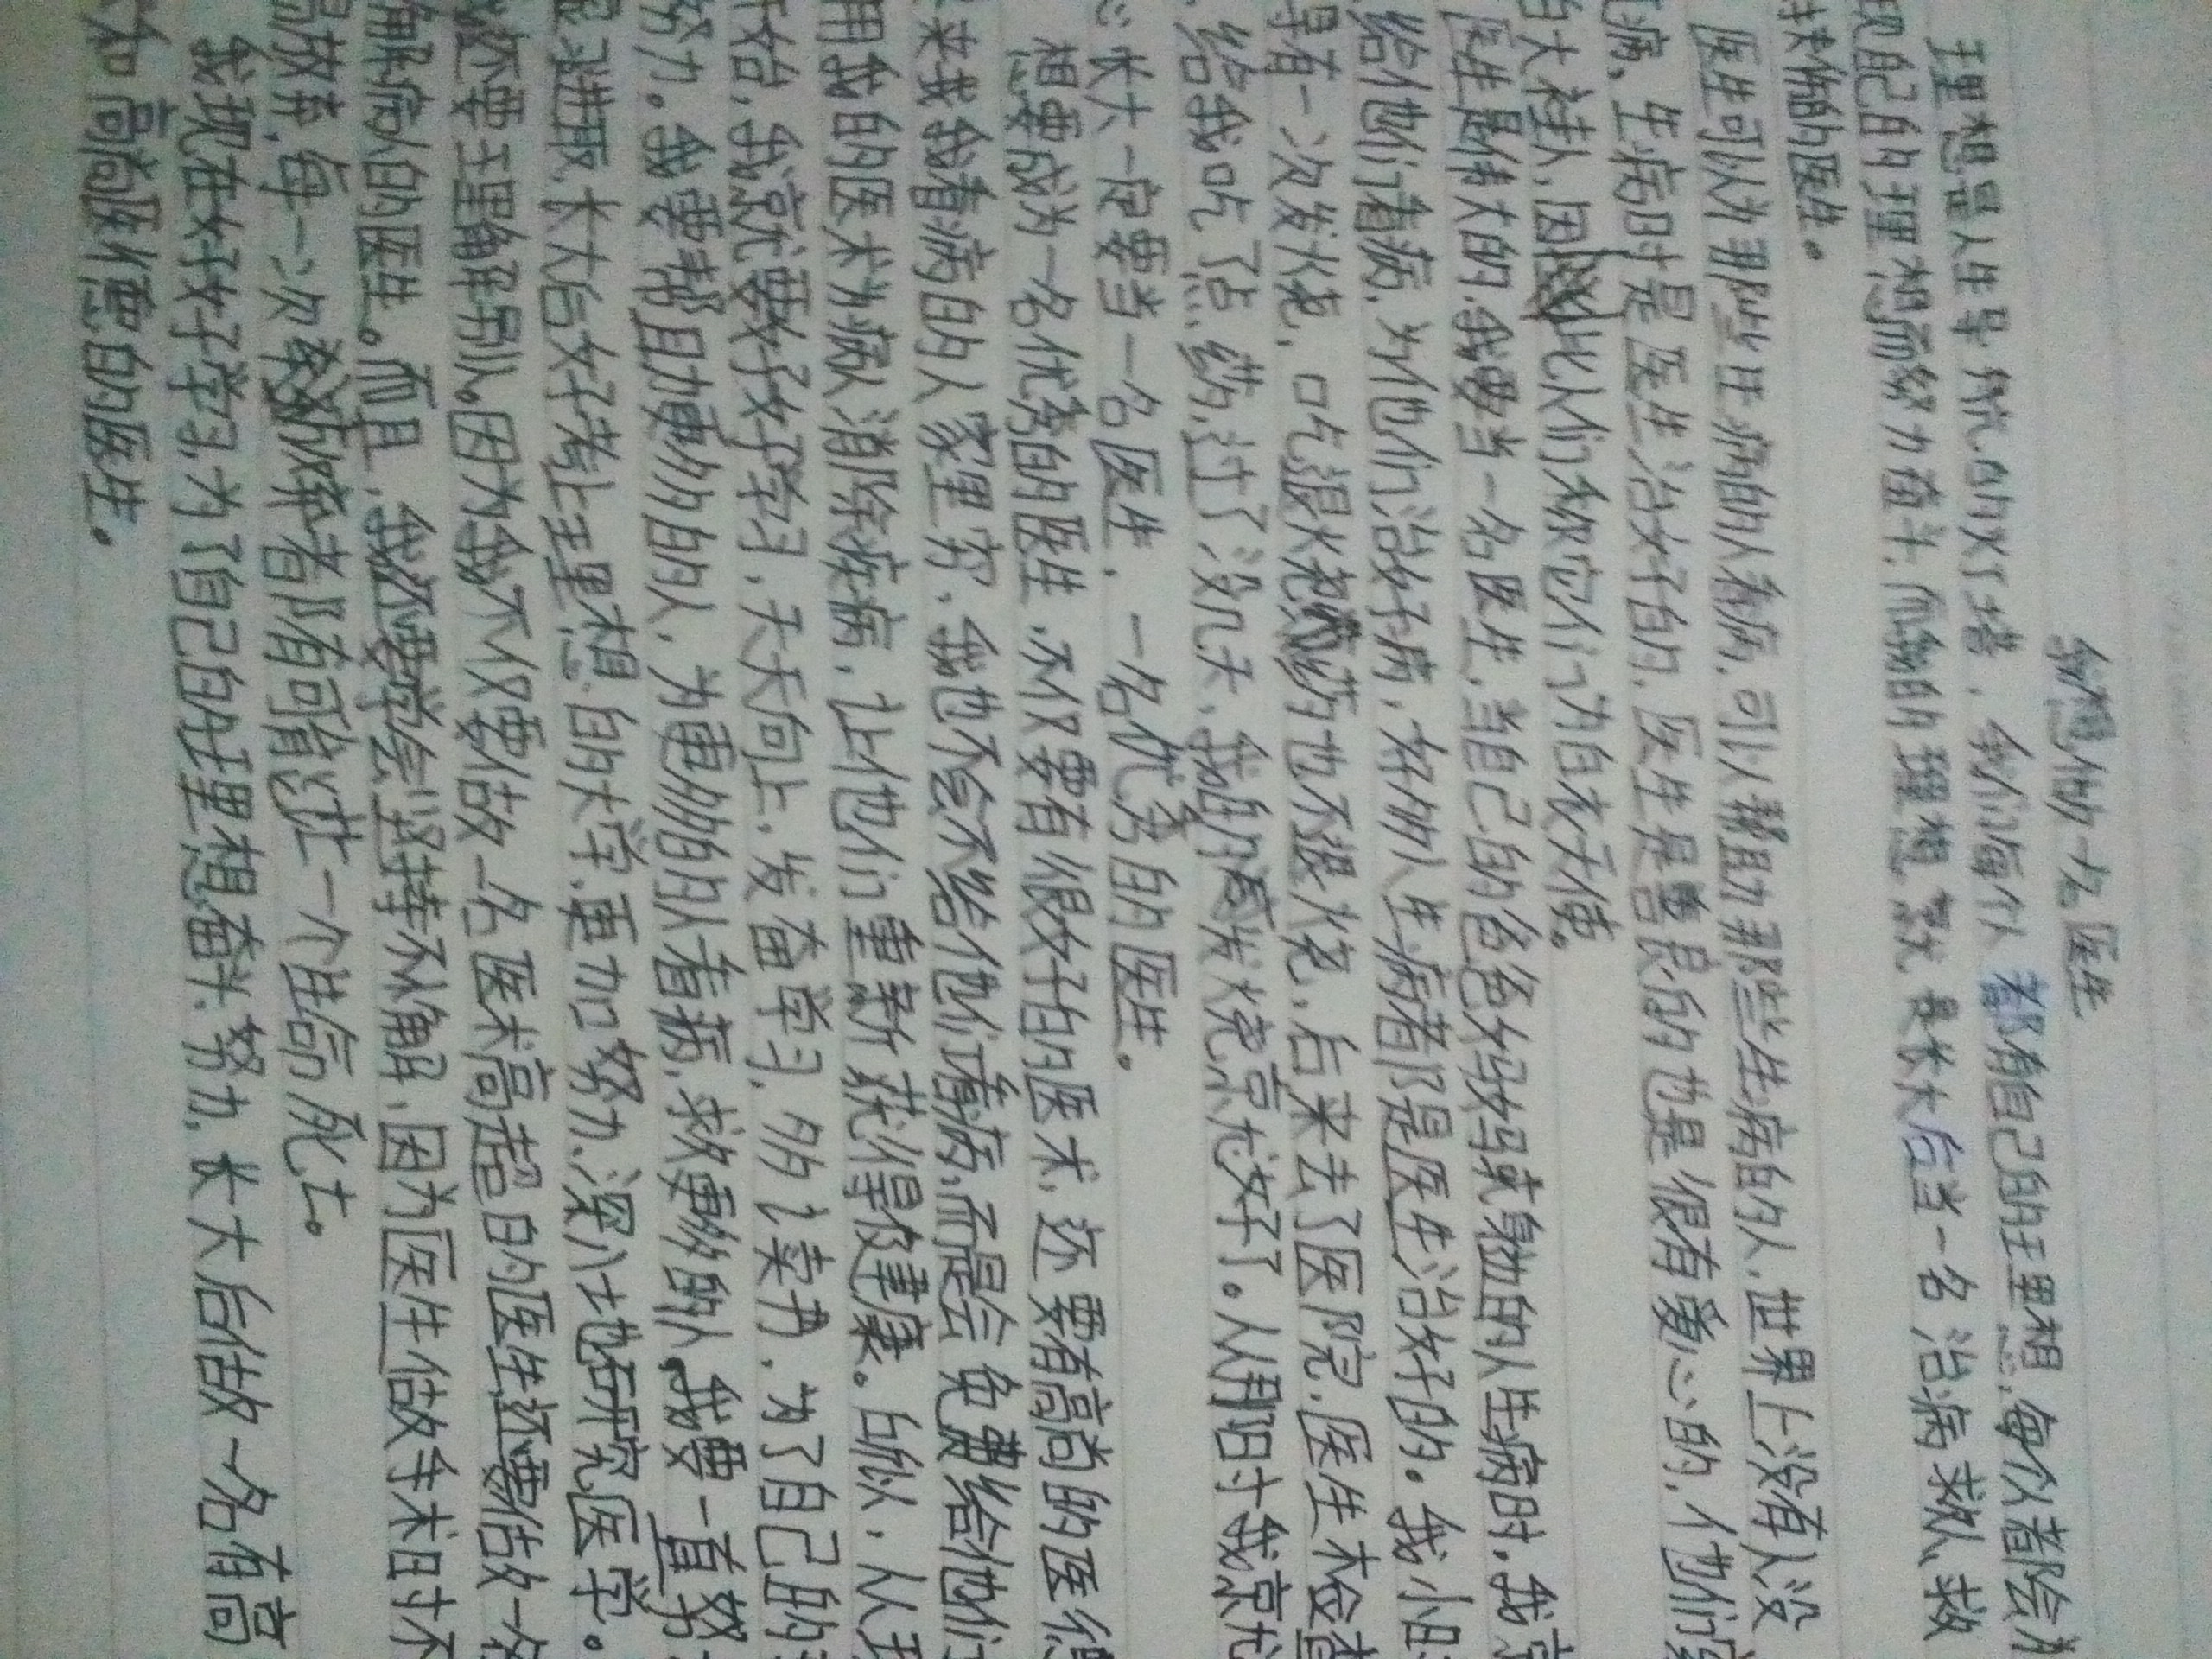 我想做一名医生
理想是人生导航的灯塔，我们每个人都有自己的理想，每个人都会为
现自己的理想而努力奋斗，而我的理想就是长大后当一名治病救人、救
扶伤的医生。
医生可以为那些生病的人看病，可以帮助那些生病的人，世界上没有人没
病，生病时是医生治好的，医生是善良的也是很有爱心的，他们穿
白大褂，因此人们称它们为白衣天使。
医生是伟大的，我要当一名医生，当自己的爸爸妈妈或身边的人生病时，我
给他们看病，为他们治好病，好的人生病都是医生治好的。我小时
得有一次发烧，吃退烧药也不退烧，后来去了医院，医生检查
，给我吃了点药，过了没几天，我的发烧就好了。从那时我就
心长大一定要当一名医生，一名优秀的医生。
想要成为一名优秀的医生，不仅要有很好的医术，还要有高尚的医德
来我看病的人家里穷，我也不会不给他们看病，而是会免费给他们
用我的医术为病人消除疾病，让他们重新获得健康。所以，从我
开始，我就要好好学习，天天向上，发奋学习，努力读书，为了自己的
努力。我要帮助更多的人，为更多的人看病，救更多的人。我要一直努
进取，长大后好考上理想的大学，更加努力，深入地研究医学。
还要理解别人。因为我不仅要做一名医术高超的医生，还要做一名
解病人的医生。而且，我还要学会坚持不懈，因为医生做手术时不
放弃，每一次放弃都有可能让一个生命死亡。
我现在好好学习，为了自己的理想奋斗、努力，长大后做一名有高
和高尚医德的医生。